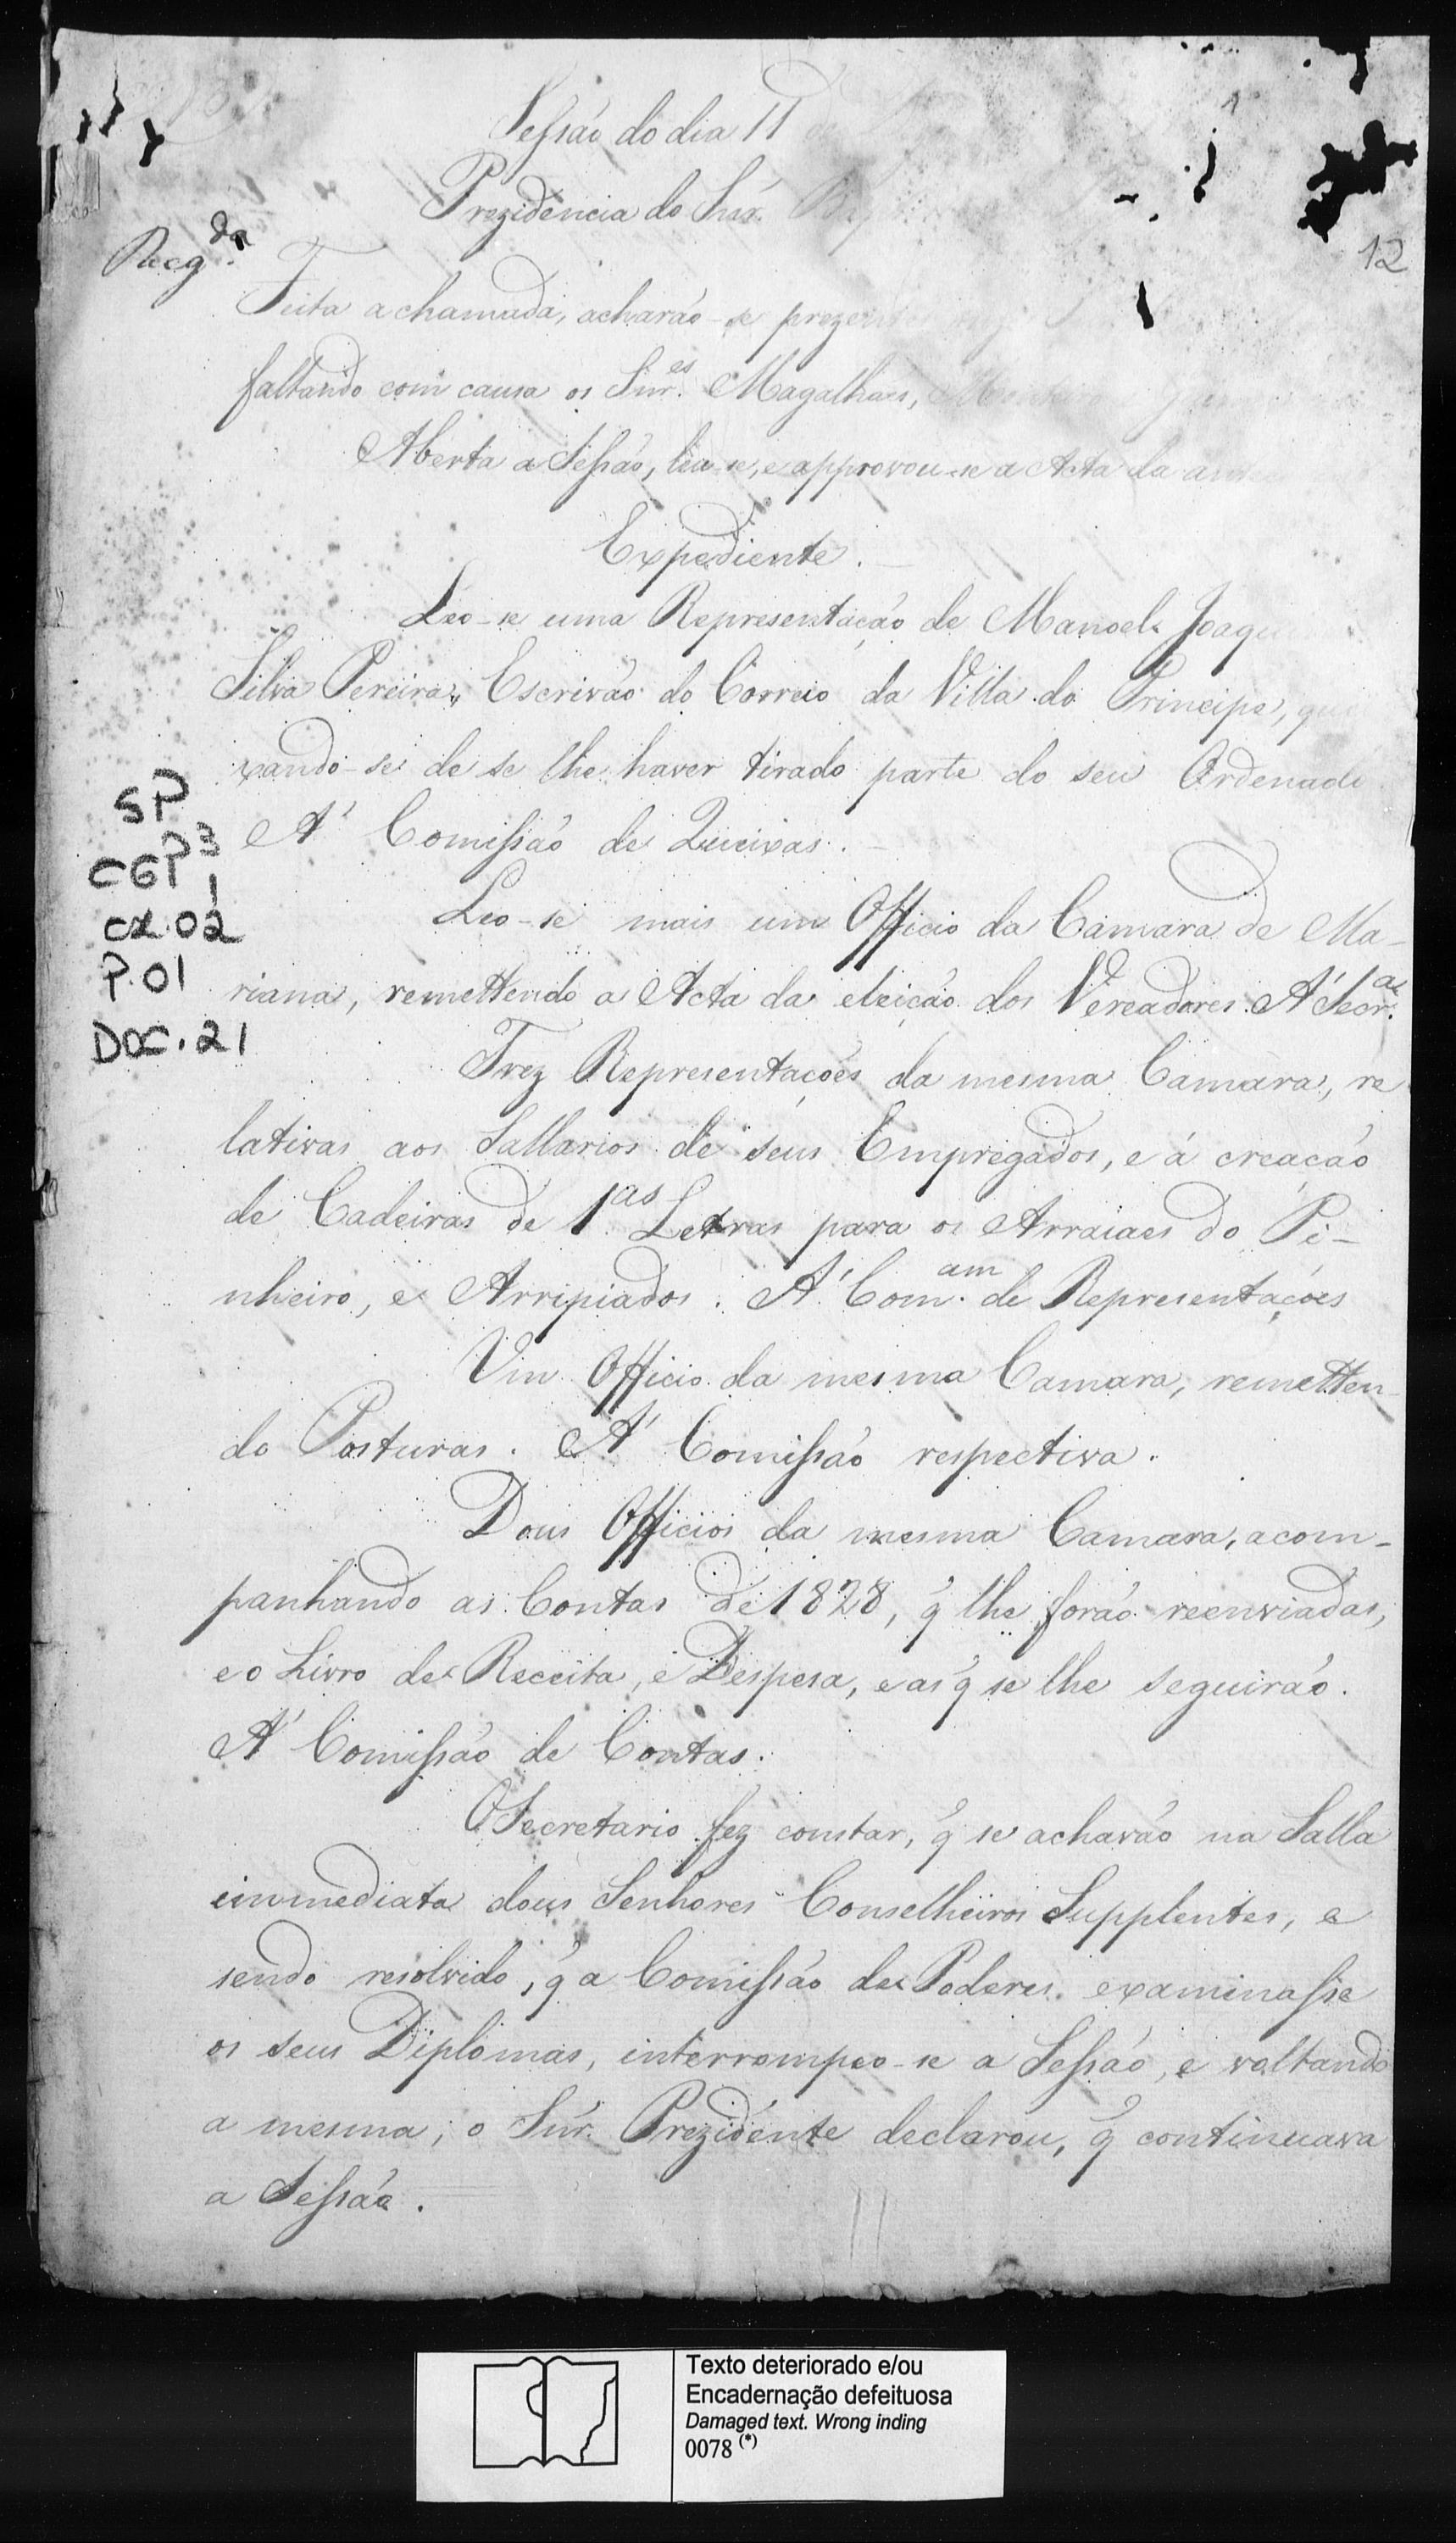 Sessão do dia 11 de
Prezidencia do Snr.
12
Reg.do
Feita a chamada, acharão-se prezentes
faltando com causa os Snr.es Magalhaes,
Aberta a Sessão, leu-se, e approvou-se a Acta da
Expediente.
Leo-se uma Representação de Manoel Joaqu
Silva Pereira, Escrivão do Correio da Villa do Principe, quei
xando-se de se lhe haver tirado parte do seu Ordenado
Á Comissão de Queixas.
Leo-se mais um Officio da Camara de Ma-
riana, remettendo a Acta da eleição dos Vereadores. Á Secr.ae
Trez Representações da mesma Camara, re
lativas aos Sallarios de seus Empregados, e á creação
de Cadeiras de 1.as Letras para os Arraiaes do Pi-
nheiro, e Arripiados. Á Com.am de Representações
Um Officio da mesma Camara, remetten-
do Posturas. Á Comissão respectiva.
Dous Officios da mesma Camara, acom-
panhando as Contas de 1828, q̃ lhe forão reenviadas,
e o Livro de Receita, e Despesa, e as q̃ se lhe seguirão.
Á Comissão de Contas.
O Secretario fez constar, q̃ se achavão na Salla
immediata dous Senhores Conselheiros Supplentes, e
sendo resolvido, q̃ a Comissão de Poderes examinasse
os seus Diplomas, interrompeo-se a Sessão, e voltando
a mesma, o Snr. Prezidente declarou, q̃ continuava
a Sessão.
SP
CGP3
1
CX.02
P.01
DOC.21
Texto deteriorado e/ou
Encadernação defeituosa
Damaged text. Wrong inding
0078 (*)